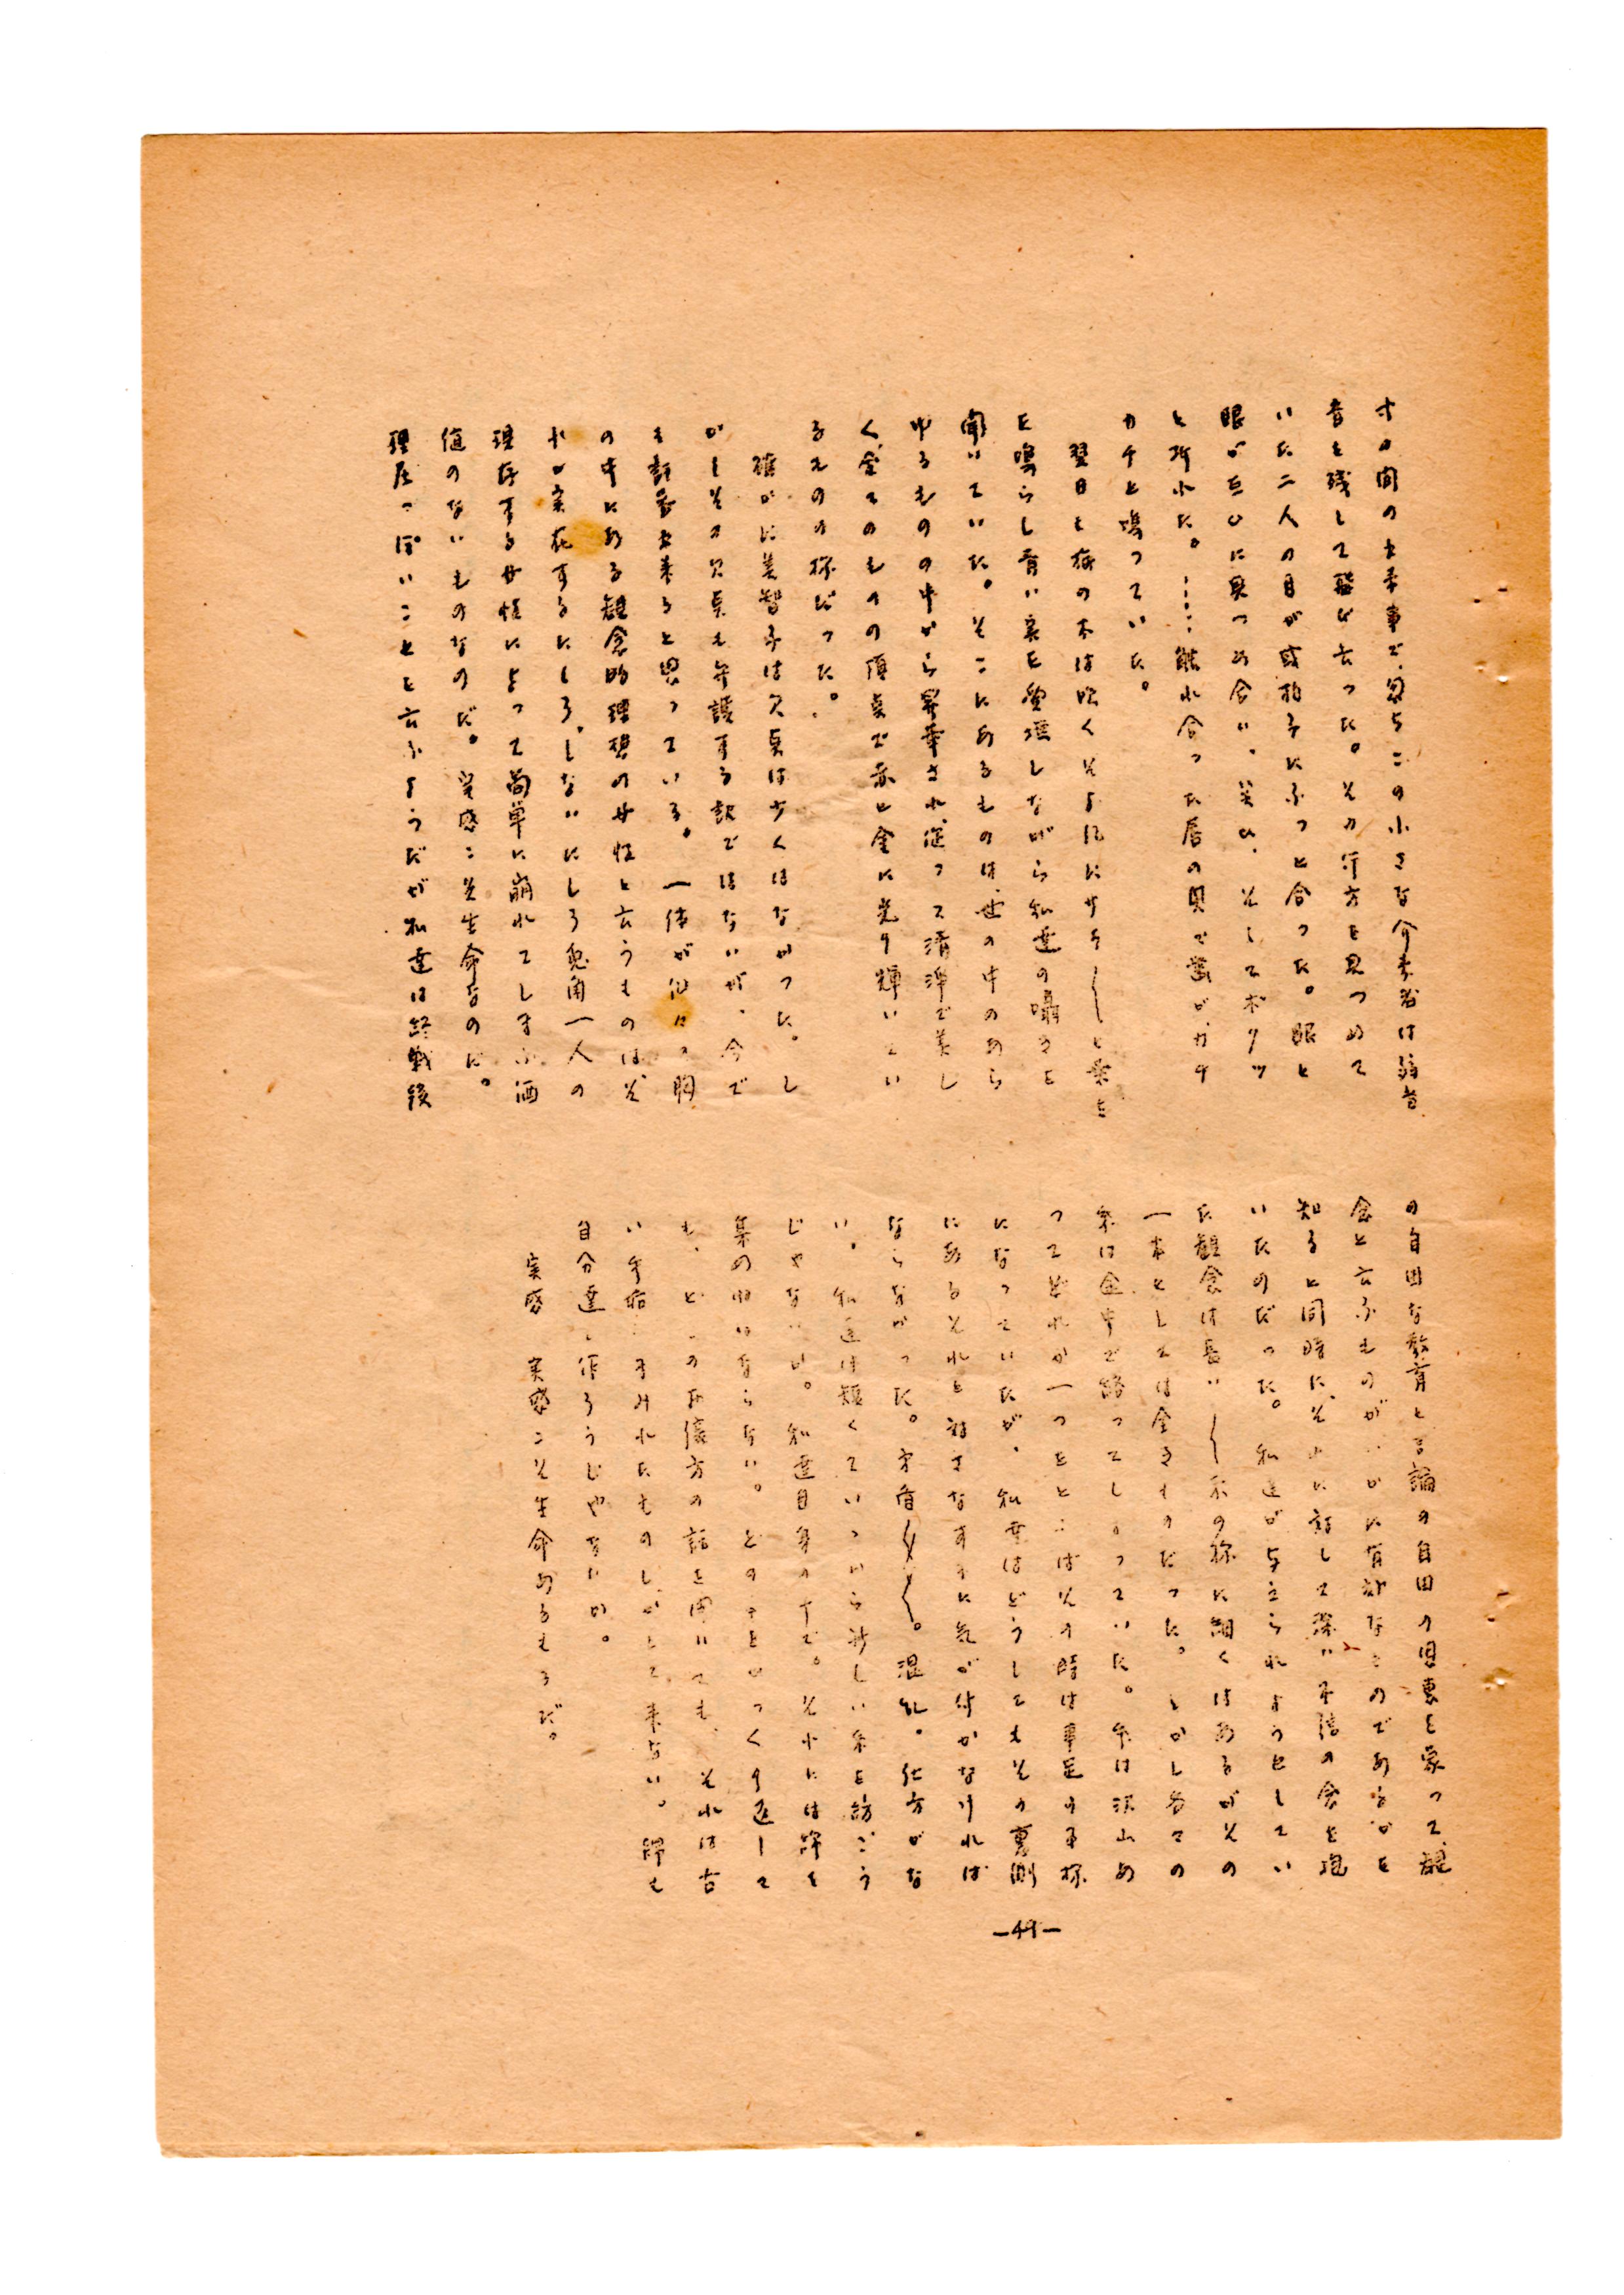 間の出来事で、忽ちこの小さな介は弱
音を残して飛び去った。その行方を見つめて
いた二人の目が或拍子にふっと合った。眼と
眼が互ひに見つめ合い、笑ひ、そしてポクッ
と折れた。……触れ合った唇の奥で歯がカチ
カチと鳴っていた。
翌日も桜の木は吹くそよ風にサラ〱と葉を
を鳴らし青い実を愛撫しながら私達の囁きを
聞いていた。そこにあるものは、世の中のあら
ゆるものの中から昇華され、従って清浄で美し
く、全てのものの頂点で赤と金に光り輝いてい
るものの様だった。
確かに美智子は欠点は少くはなかった。し
がしその欠点も弁護する訳ではないが、今で
も許容出来ると思っている。一体が個々の胸
の中にある観念的理想の女性と云うものは、そ
れが実在するにしろ、しないにしろ兎角一人の
現存する女性によって簡単に崩れてしまふ価
値のないものなのだ。実感こそ生命なのだ。
理屈っぽいことを云ふようだが私達は終戦後
の自由な教育と言論の自由の恩恵を蒙って、観
念と云ふものがいかに有難なものであるかを
知ると同時に、それに対して深い不信の念を抱
いたのだった。私達が与えられようとしてい
た観念は長い〱糸の様に細くはあるがその
一本としては全きものだった。しかし各々の
糸は途中で絡ってしまっていた。糸は沢山あ
ってどれか一つをとればその時は事足りる様
になっていたが、私達はどうしてもその裏側
にあるそれと対をなすに気が付かなければ
ならなかった。矛盾〱〱。混乱。仕方がな
い。私達は短くていいから新しい糸を紡ごう
じゃないか。私達自身の手で。それには綿を
集めねばならない。どのをひっくり返して
も、どのお偉方の話を聞いても、それは古
い手垢にまみれたものしかとて来ない。綿も
自分達で作ろうじゃないか。
実感　実感こそ生命あるものだ。
—49—